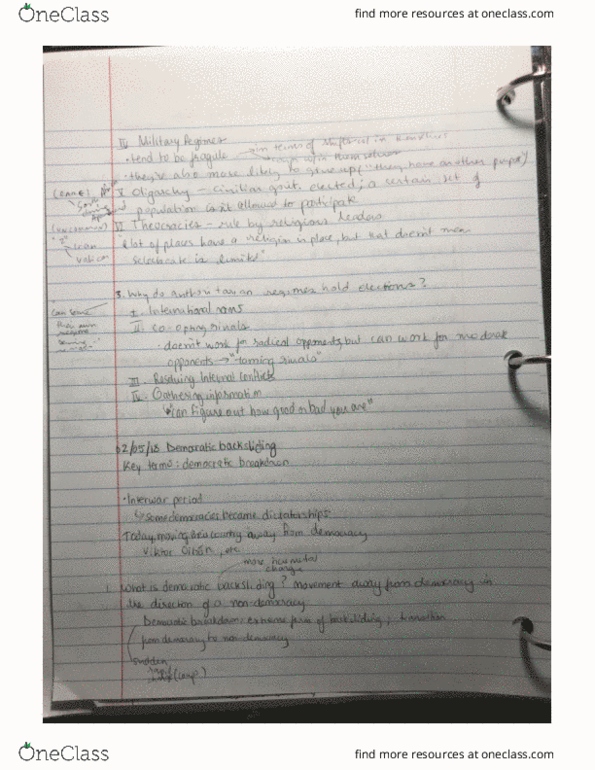 OneClass
find more resources at oneclass.com
IV Military Regimes
• tend to be fragile in terms of
• they're also more likely to give up ("they have another purpose")
V Oligarchy - civilian govt. elected; a certain set of
population isn't allowed to participate
VI Theocracies - rule by religious leaders
Iran
Vatican
lot of places have a religion in place, but that doesn't mean
3. Why do authoritarian regimes hold elections?
I. International norms
II. co-opting rivals
• doesn't work for radical opponents, but can work for moderate
opponents → "taming rivals"
III. Resolving Internal conflicts
IV. Gathering information
"can figure out how good or bad you are"
02/05/18 Democratic backsliding
Key terms: democratic breakdown
• Interwar period
↳ some democracies became dictatorships
Today, moving away from democracy
Viktor Orbán, etc
more incremental
change
1. What is democratic backsliding? movement away from democracy in
the direction of a non-democracy
Democratic breakdown: extreme form of backsliding; transition
from democracy to non-democracy
sudden
(coup)
OneClass
find more resources at oneclass.com